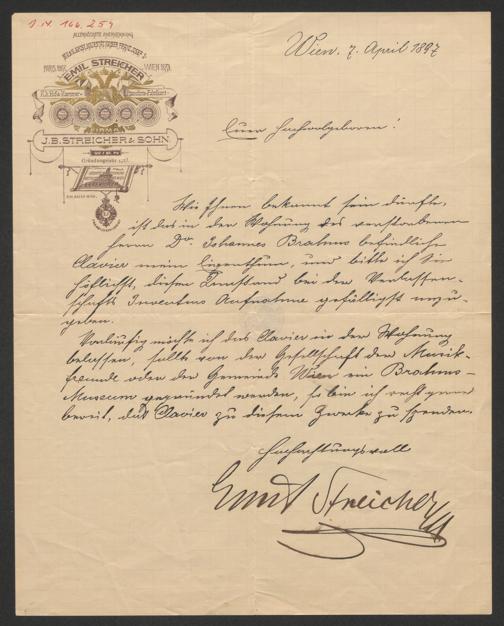 I. N. 166.259
Allerhöchste Anerkennung
PARIS 1867. WIEN 1873.
EMIL STREICHER
K.k. Hof- u. Kammer- Pianoforte-Fabrikant
FIRMA
J.B. STREICHER & SOHN
WIEN
Wien, 7. April 1897
Euer Hochwolgeboren!
Wie Ihnen bekannt sein dürfte,
ist das in der Wohnung des verstorbenen
Herrn Dr. Johannes Brahms befindliche
Clavier mein Eigenthum, und bitte ich Sie
höflichst, diesen Umstand bei der Verlassen-
schafts Inventur Aufnahme gefälligst anzu-
geben.
Vorläufig möchte ich das Clavier in der Wohnung
belassen, sollte von der Gesellschaft der Musik-
freunde oder der Gemeinde Wien ein Brahms-
Museum gegründet werden, so bin ich recht gerne
bereit, das Clavier zu diesem Zwecke zu spenden.
Hochachtungsvoll
Emil Streicher